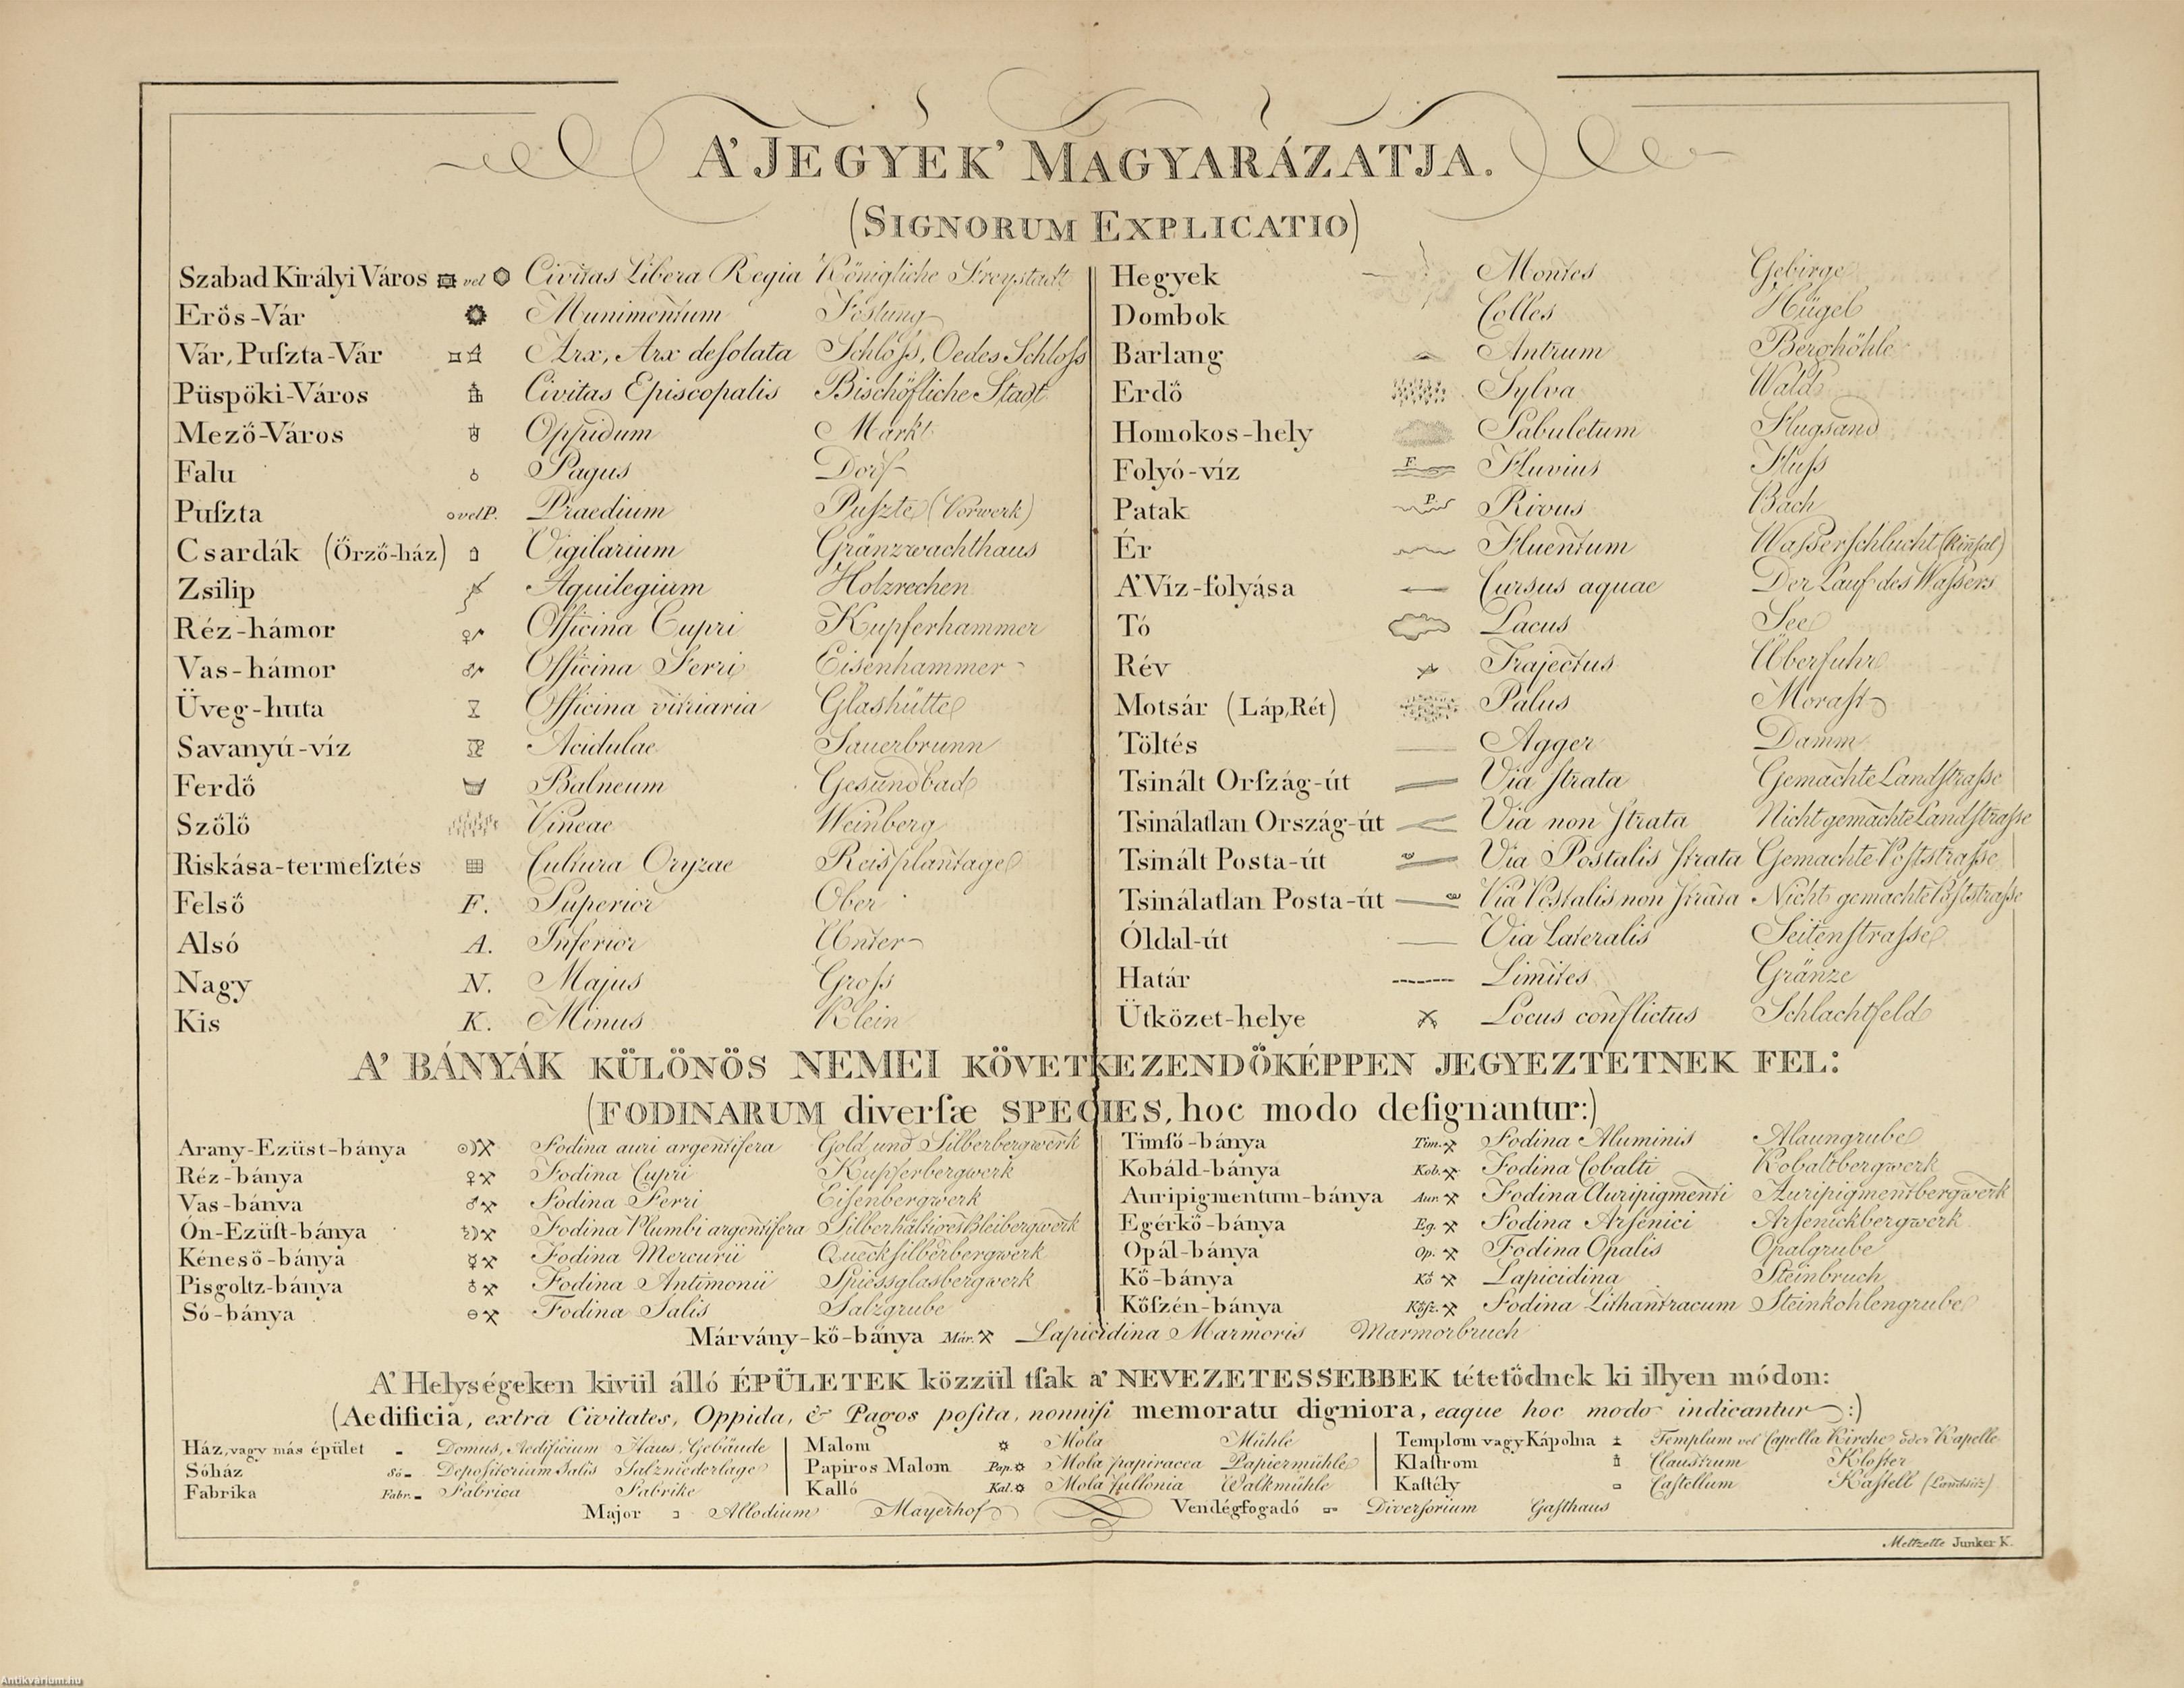 A' JEGYEK' MAGYARÁZATJA.
(SIGNORUM EXPLICATIO)
Szabad Királyi Város vel Civitas Libera Regia Königliche Freystadt
Erős-Vár Munimentum Festung
Vár, Puſzta-Vár Arx, Arx deſolata Schloſs, Oedes Schloſs
Püspöki-Város Civitas Episcopalis Bischöfliche Stadt
Mező-Város Oppidum Markt
Falu Pagus Dorf
Puſzta vel P. Praedium Puſzte (Vorwerk)
Csardák (Őrző-ház) Vigilarium Gränzwachthaus
Zsilip Aquilegium Holzrechen
Réz-hámor Officina Cupri Kupferhammer
Vas-hámor Officina Ferri Eisenhammer
Üveg-huta Officina vitriaria Glashütte
Savanyú-víz Acidulae Sauerbrunn
Ferdő Balneum Gesundbad
Szőlő Vineae Weinberg
Riskása-termeſztés Cultura Oryzae Reisplantage
Felső F. Superior Ober
Alsó A. Inferior Unter
Nagy N. Majus Groſs
Kis K. Minus Klein
Hegyek Montes Gebirge
Dombok Colles Hügel
Barlang Antrum Berghöhle
Erdő Sylva Wald
Homokos-hely Sabuletum Flugsand
Folyó-víz F. Fluvius Fluſs
Patak P. Rivus Bach
Ér Fluentum Waſserſchlucht (Riñsal)
A' Víz-folyása Cursus aquae Der Lauf des Waſsers
Tó Lacus See
Rév Trajectus Überfuhr
Motsár (Láp, Rét) Palus Moraſt
Töltés Agger Damm
Tsinált Orſzág-út Via ſtrata Gemachte Landſtraſse
Tsinálatlan Ország-út Via non ſtrata Nicht gemachte Landſtraſse
Tsinált Posta-út Via Postalis ſtrata Gemachte Poſtstraſse
Tsinálatlan Posta-út Via Postalis non ſtrata Nicht gemachte Poſtstraſse
Óldal-út Via Lateralis Seitenſtraſse
Határ Limites Gränze
Ütközet-helye Locus conflictus Schlachtfeld
A' BÁNYÁK KÜLÖNÖS NEMEI KÖVETKEZENDŐKÉPPEN JEGYEZTETNEK FEL:
(FODINARUM diverſæ SPECIES, hoc modo deſignantur:)
Arany-Ezüst-bánya Fodina auri argentifera Gold und Silberbergwerk
Réz-bánya Fodina Cupri Kupferbergwerk
Vas-bánya Fodina Ferri Eiſenbergwerk
Ón-Ezüſt-bánya Fodina Plumbi argentifera Silberhältiges Bleibergwerk
Kéneső-bánya Fodina Mercurii Queckſilberbergwerk
Pisgoltz-bánya Fodina Antimonii Spiessglasbergwerk
Só-bánya Fodina Salis Salzgrube
Timſó-bánya Tim. Fodina Aluminis Alaungrube
Kobáld-bánya Kob. Fodina Cobalti Kobaltbergwerk
Auripigmentum-bánya Aur. Fodina Auripigmenti Auripigmentbergwerk
Egérkő-bánya Eg. Fodina Arſenici Arſenickbergwerk
Opál-bánya Op. Fodina Opalis Opalgrube
Kő-bánya Kő Lapicidina Steinbruch
Kőſzén-bánya Kőſz. Fodina Lithantracum Steinkohlengrube
Márvány-kő-bánya Már. Lapicidina Marmoris Marmorbruch
A' Helységeken kivül álló ÉPÜLETEK közzül tſak a' NEVEZETESSEBBEK tétetődnek ki illyen módon:
(Aedificia, extra Civitates, Oppida, & Pagos poſita, nonniſi memoratu digniora, eaque hoc modo indicantur:)
Ház, vagy más épület Domus, Aedificium Haus, Gebäude
Sóház Só Depoſitorium Salis Salzniederlage
Fabrika Fabr. Fabrica Fabrike
Malom Mola Mühle
Papiros Malom Pap. Mola papiracea Papiermühle
Kalló Kal. Mola fullonia Walkmühle
Templom vagy Kápolna Templum vel Capella Kirche oder Kapelle
Klaſtrom Claustrum Kloſter
Kaſtély Caſtellum Kaſtell (Landsitz)
Major Allodium Mayerhof Vendégfogadó Diverſorium Gaſthaus
Mettzette Junker K.
Antikvarium.hu